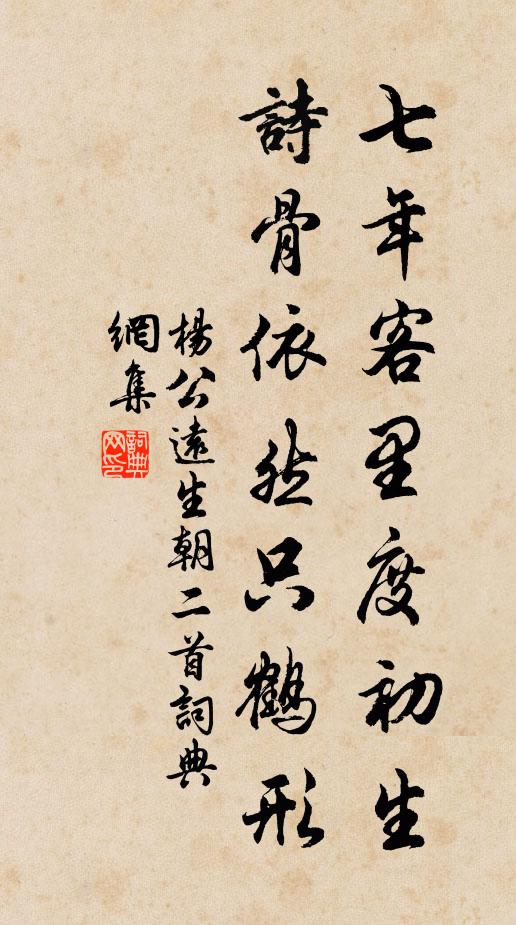 七年客里度初生
詩骨依然只鶴形
楊公遠生朝二首詞典
網集
詞典
网印